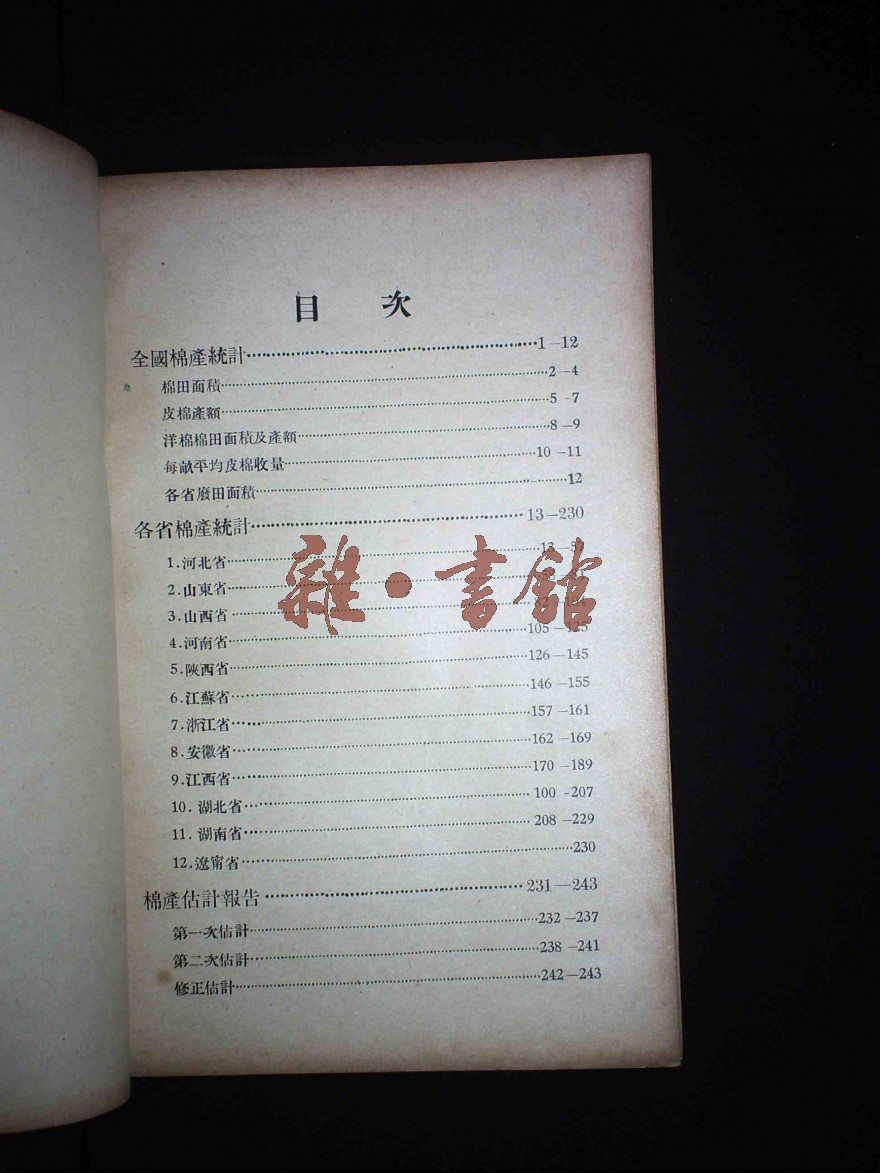 目次
全國棉產統計 1—12
棉田面積 2—4
皮棉產額 5-7
洋棉棉田面積及產額 8—9
每畝平均皮棉收量 10—11
各省廢田面積 12
各省棉產統計 13—230
1.河北省
2.山東省
3.山西省
4.河南省 105—125
5.陝西省 126—145
6.江蘇省 146—155
7.浙江省 157—161
8.安徽省 162—169
9.江西省 170—189
10.湖北省 100-207
11.湖南省 208—229
12.遼甯省 230
棉產估計報告 231—243
第一次估計 232—237
第二次估計 238—241
修正估計 242—243
雜·書館